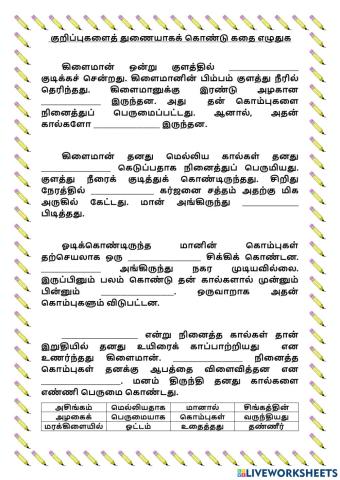 குறிப்புகளைத் துணையாகக் கொண்டு கதை எழுதுக
கிளைமான் ஒன்று குளத்தில் ______________
குடிக்கச் சென்றது. கிளைமானின் பிம்பம் குளத்து நீரில்
தெரிந்தது. கிளைமானுக்கு இரண்டு அழகான
______________ இருந்தன. அது தன் கொம்புகளை
நினைத்துப் பெருமைப்பட்டது. ஆனால், அதன்
கால்களோ ______________ இருந்தன.
கிளைமான் தனது மெல்லிய கால்கள் தனது
______________ கெடுப்பதாக நினைத்துப் பெருமியது.
குளத்து நீரைக் குடித்துக் கொண்டிருந்தது. சிறிது
நேரத்தில் ______________ கர்ஜனை சத்தம் அதற்கு மிக
அருகில் கேட்டது. மான் அங்கிருந்து ______________
பிடித்தது.
ஓடிக்கொண்டிருந்த மானின் கொம்புகள்
தற்செயலாக ஒரு ______________ சிக்கிக் கொண்டன.
______________ அங்கிருந்து நகர முடியவில்லை.
இருப்பினும் பலம் கொண்டு தன் கால்களால் முன்னும்
பின்னும் ______________. ஒருவாறாக அதன்
கொம்புகளும் விடுபட்டன.
______________ என்று நினைத்த கால்கள் தான்
இறுதியில் தனது உயிரைக் காப்பாற்றியது என
உணர்ந்தது கிளைமான். ______________ நினைத்த
கொம்புகள் தனக்கு ஆபத்தை விளைவித்தன என
______________. மனம் திருந்தி தனது கால்களை
எண்ணி பெருமை கொண்டது.
அசிங்கம் மெல்லியதாக மானால் சிங்கத்தின்
அழகைக் பெருமையாக கொம்புகள் வருந்தியது
மரக்கிளையில் ஓட்டம் உதைத்தது தண்ணீர்
LIVEWORKSHEETS